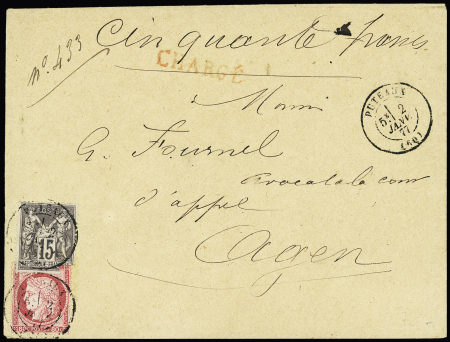 Cinquante francs
nº. 433
CHARGÉ
à Monsieur
G. Fournel
Avocat à la cour
d'appel
Agen
PUTEAUX
5E 2
JANV.
77
(60)
15